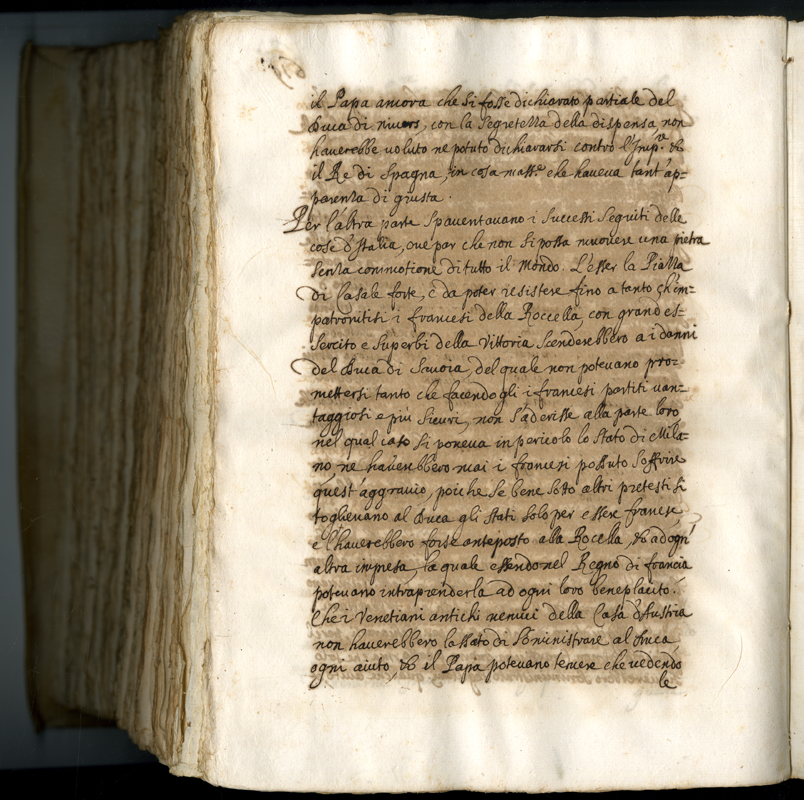 il Papa ancora che si fosse dichiarato partiale del
Duca di nivers, con la segretezza della dispensa, non
haverebbe voluto ne potuto dichiararsi contro l'Imp.re &
il Re di Spagna, in cosa mass.e che haveva tant'ap=
parenza di giusta.
Per l'altra parte spaventavano i successi seguiti delle
cose d'Italia, ove par che non si possa muovere una pietra
senza commotione di tutto il Mondo. L'esser la Piazza
di Casale forte, e da poter resistere fino a tanto ch'im=
patronitisi i francesi della Roccella, con grand'es=
sercito e superbi della Vittoria scenderebbero a i danni
del Duca di Savoia, del quale non potevano pro=
mettersi tanto che facendogli i francesi partiti van=
taggiosi e più sicuri, non s'aderisse alla parte loro
nel qual caso si poneva in pericolo lo stato di Mila=
no, ne haverebbero mai i francesi possuto soffrire
quest'aggravio, poiche se bene sotto altri pretesti si
toglievano al Duca gli stati solo per essere francese,
e l'haverebbero forse anteposto alla Rocella & ad ogn'
altra impresa, la quale essendo nel Regno di francia
potevano intraprenderla ad ogni loro beneplacito.
Che i Venetiani antichi nemici della Casa d'Austria
non haverebbero lassato di somministrare al Duca
ogni aiuto, & il Papa potevano temere che vedendo
le